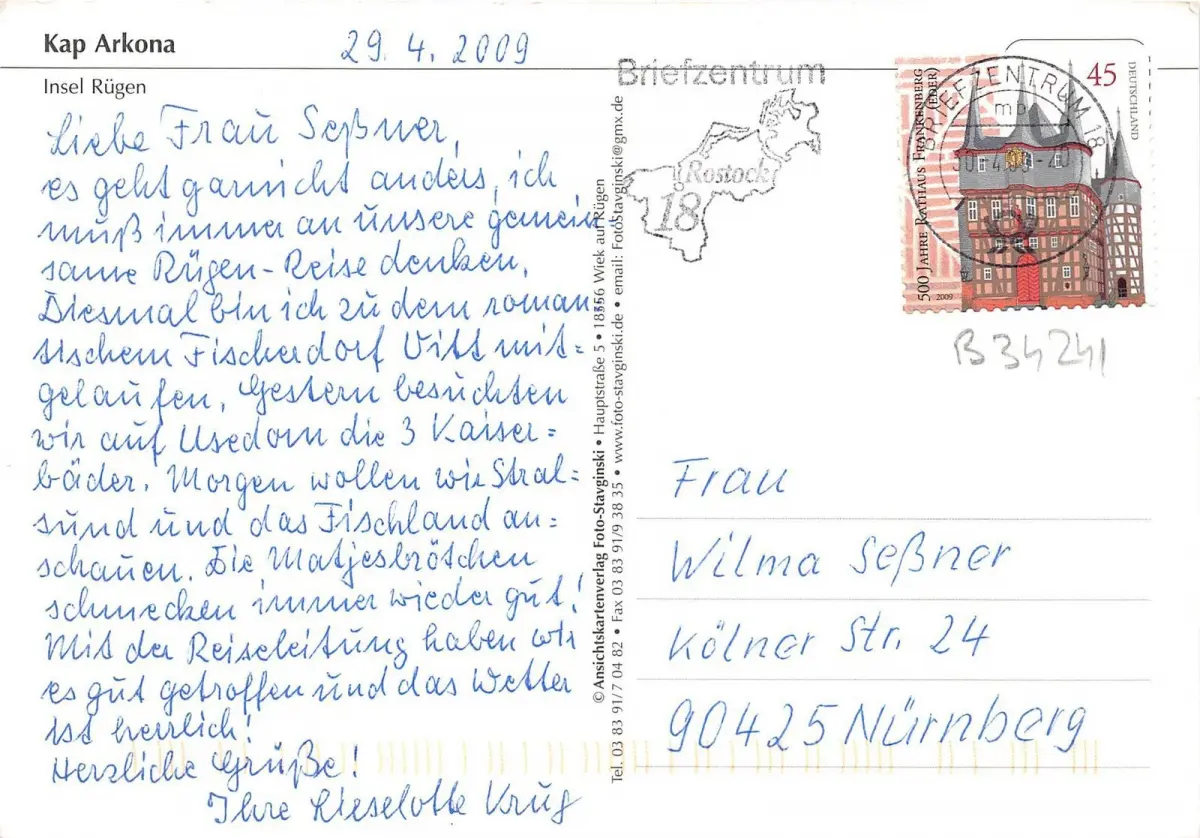 Kap Arkona
29. 4. 2009
Insel Rügen
Liebe Frau Seßner,
es geht garnicht anders, ich
muß immer an unsere gemein
same Rügen-Reise denken.
Diesmal bin ich zu dem roman
tischem Fischerdorf Vitt mit=
gelaufen. Gestern besuchten
wir auf Usedom die 3 Kaiser=
bäder. Morgen wollen wir Stral=
sund und das Fischland an=
schauen. Die Matjesbrötchen
schmecken immer wieder gut!
Mit der Reiseleitung haben wir
es gut getroffen und das Wetter
ist herrlich!
Herzliche Grüße!
Ihre Lieselotte Krug
© Ansichtskartenverlag Foto-Stavginski • Hauptstraße 5 • 18556 Wiek auf Rügen
Tel. 03 83 91/7 04 82 • Fax 03 83 91/9 38 35 • www.foto-stavginski.de • email: FotoStavginski@gmx.de
Briefzentrum
Rostock
18
BRIEFZENTRUM 18
mb
500 JAHRE RATHAUS FRANKENBERG
(EDER)
2009
45
DEUTSCHLAND
B34241
Frau
Wilma Seßner
Kölner Str. 24
90425 Nürnberg